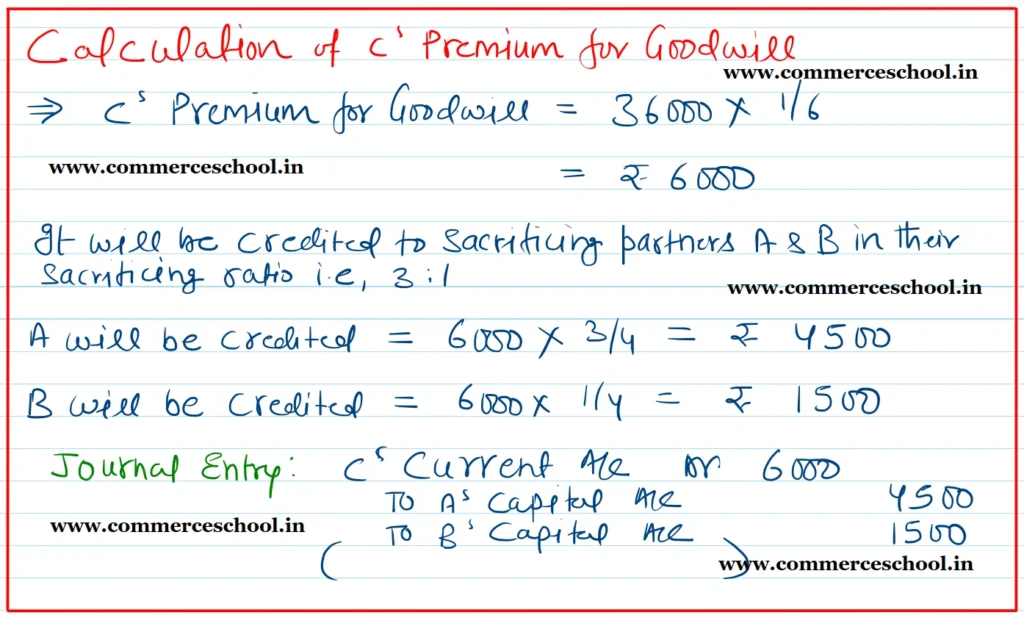 Calculation of C's Premium for Goodwill
www.commerceschool.in
⇒ C's Premium for Goodwill = 36000 × 1/6
www.commerceschool.in
= ₹ 6000
It will be credited to sacrificing partners A & B in their
sacrificing ratio i.e, 3:1
www.commerceschool.in
A will be credited = 6000 × 3/4 = ₹ 4500
B will be credited = 6000 × 1/4 = ₹ 1500
Journal Entry: C's Current A/c Dr 6000
To A's Capital A/c 4500
www.commerceschool.in
To B's Capital A/c 1500
( )
www.commerceschool.in